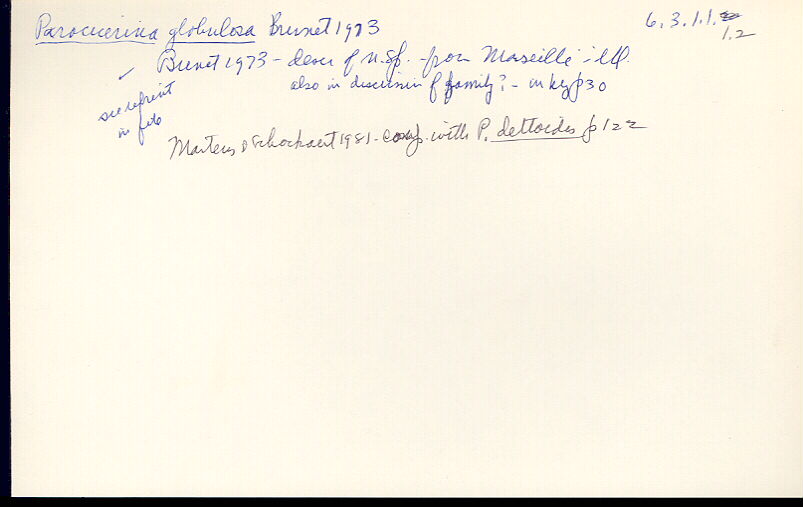 Parocicerina globulosa Brunet 1973
6.3.1.1.
1.2
Brunet 1973 - descr of n.sp. - from Marseille - ill.
also in discussion of family? - in key p30
see reprint
in file
Martens & Schockaert 1981 - comp. with P. deltoides p 122